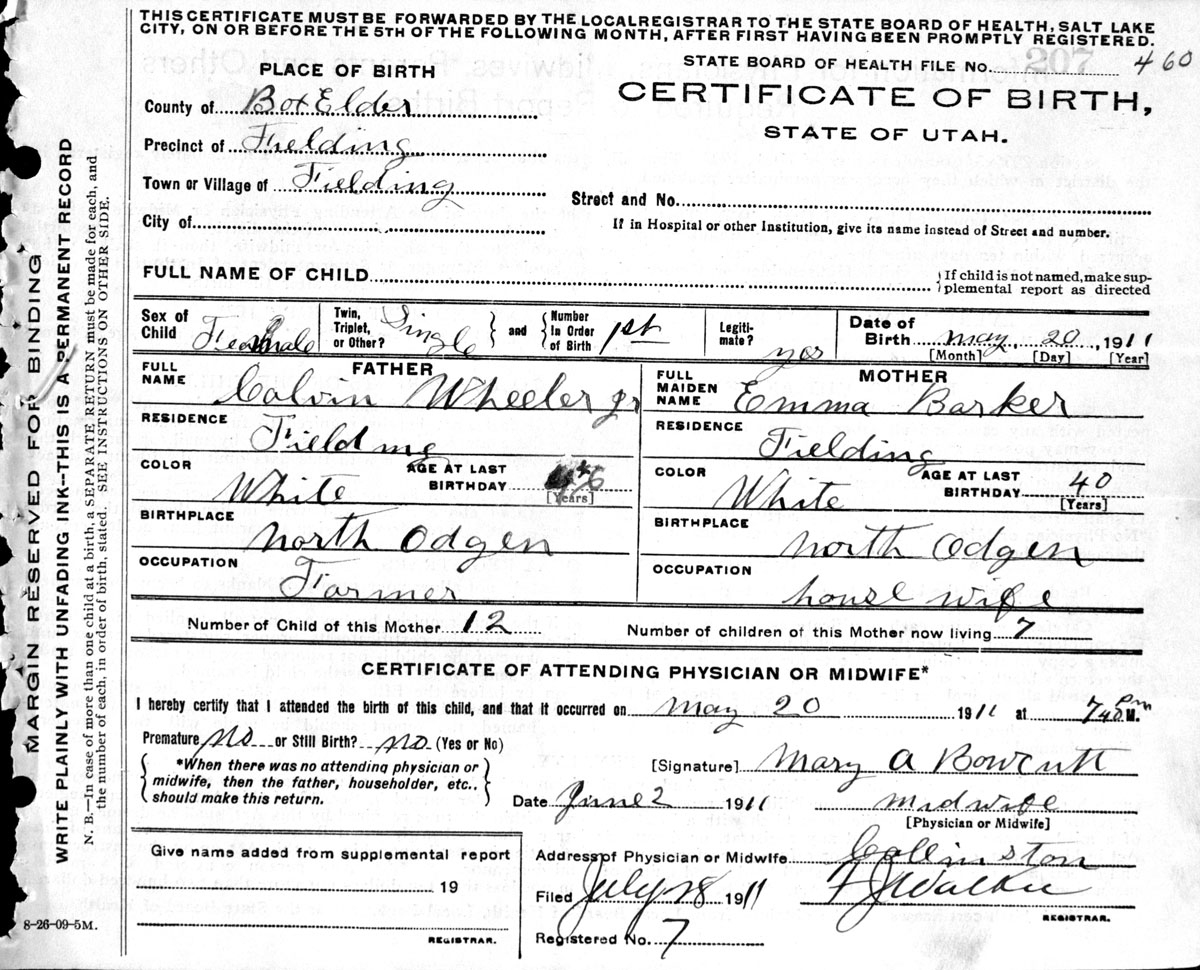 THIS CERTIFICATE MUST BE FORWARDED BY THE LOCAL REGISTRAR TO THE STATE BOARD OF HEALTH, SALT LAKE
CITY, ON OR BEFORE THE 5TH OF THE FOLLOWING MONTH, AFTER FIRST HAVING BEEN PROMPTLY REGISTERED.
PLACE OF BIRTH
STATE BOARD OF HEALTH FILE No. 207 460
County of Box Elder
CERTIFICATE OF BIRTH,
STATE OF UTAH.
Precinct of Fielding
Town or Village of Fielding
Street and No.
City of
If in Hospital or other Institution, give its name instead of Street and number.
FULL NAME OF CHILD
If child is not named, make sup-
plemental report as directed
Sex of Child Female Twin, Triplet, or Other? Single and Number In Order of Birth 1st Legiti-mate? yes Date of Birth May 20, 1911
[Month] [Day] [Year]
FATHER MOTHER
FULL NAME Calvin Wheeler Jr FULL MAIDEN NAME Emma Barker
RESIDENCE Fielding RESIDENCE Fielding
COLOR White AGE AT LAST BIRTHDAY 46 [Years] COLOR White AGE AT LAST BIRTHDAY 40 [Years]
BIRTHPLACE North Odgen BIRTHPLACE North Odgen
OCCUPATION Farmer OCCUPATION house wife
Number of Child of this Mother 12 Number of children of this Mother now living 7
CERTIFICATE OF ATTENDING PHYSICIAN OR MIDWIFE*
I hereby certify that I attended the birth of this child, and that it occurred on May 20 1911 at 7 PM M.
Premature No or Still Birth? No (Yes or No)
*When there was no attending physician or
midwife, then the father, householder, etc.,
should make this return.
[Signature] Mary A Bowcutt
Date June 2 1911 Midwife
[Physician or Midwife]
Give name added from supplemental report
Address of Physician or Midwife Collinston
19
Filed July 28 1911 F J Walker
REGISTRAR.
Registered No. 7
REGISTRAR.
8-26-09-5M.
MARGIN RESERVED FOR BINDING
WRITE PLAINLY WITH UNFADING INK--THIS IS A PERMANENT RECORD
N. B.—In case of more than one child at a birth, a SEPARATE RETURN must be made for each, and
the number of each, in order of birth, stated. SEE INSTRUCTIONS ON OTHER SIDE.